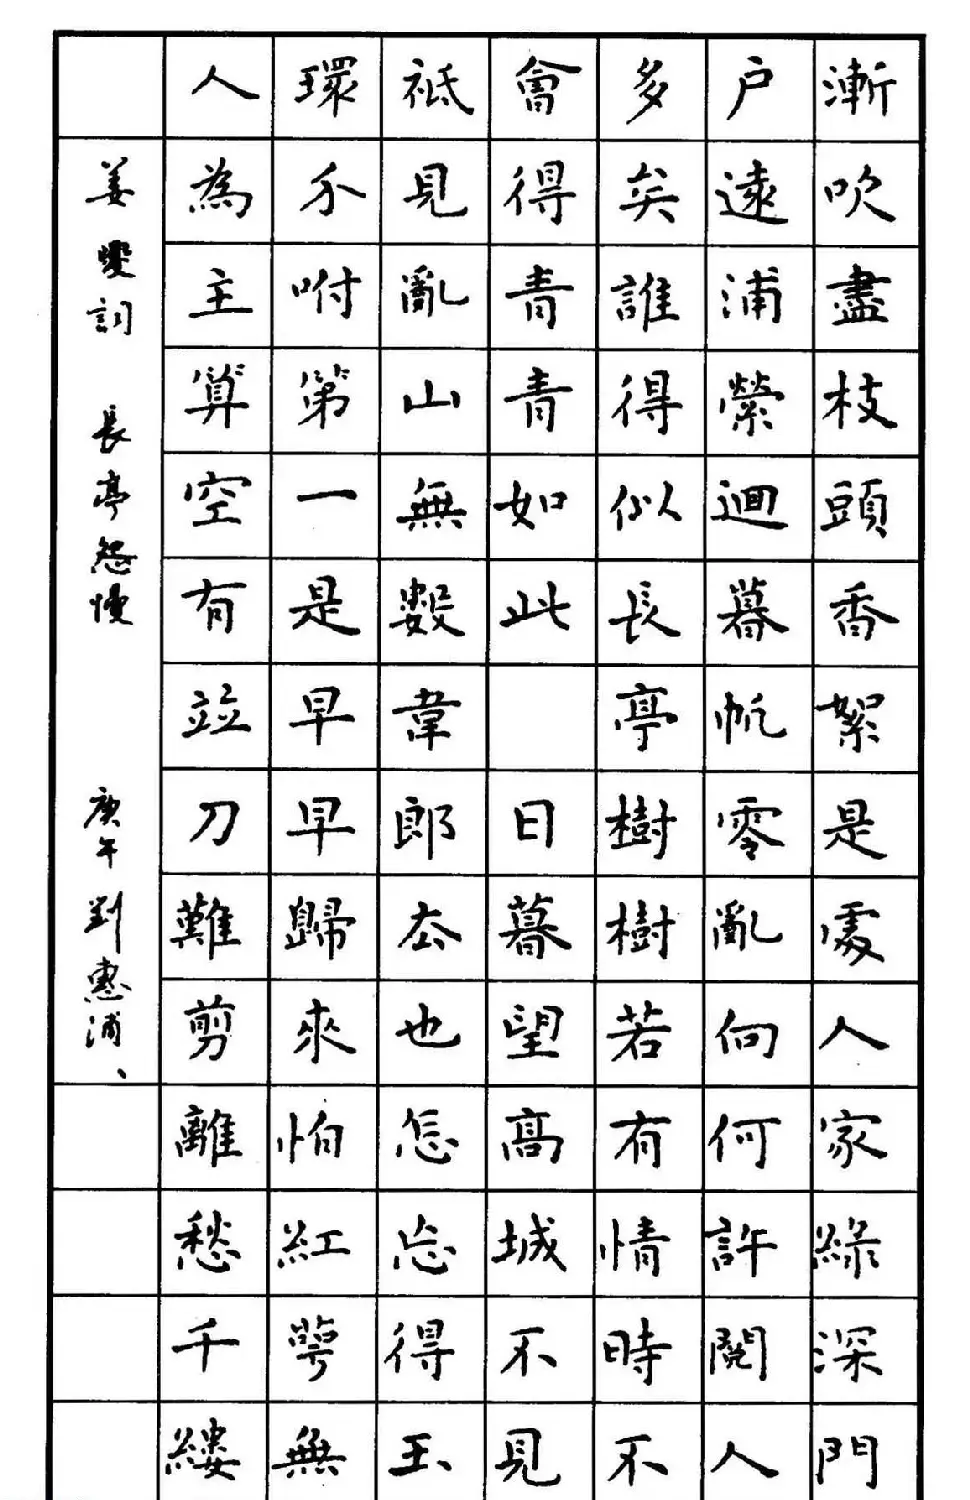 漸吹盡枝頭香絮是處人家綠深門
户遠浦縈迴暮帆零亂向何許閱人
多矣誰得似長亭樹樹若有情時不
會得青青如此　日暮望高城不見
祗見亂山無數韋郎去也怎忘得玉
環分咐第一是早早歸來怕紅萼無
人為主算空有並刀難剪離愁千縷
姜夔詞　長亭怨慢　庚午劉惠浦、